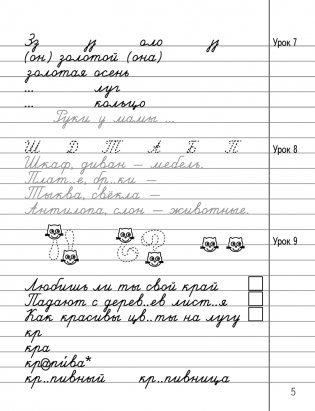 Зз зз оло зз Урок 7
(он) золотой (она)
золотая осень
... луг
... кольцо
Руки у мамы ...
Ш Д Т А Б П Урок 8
Шкаф, диван — мебель.
Плат..е, бр..ки —
Тыква, свёкла —
Антилопа, слон — животные.
Урок 9
Любишь ли ты свой край
Падают с дерев..ев лист..я
Как красивы цв..ты на лугу
кр
кра
кр@пи́ва*
кр..пивный кр..пивница
5